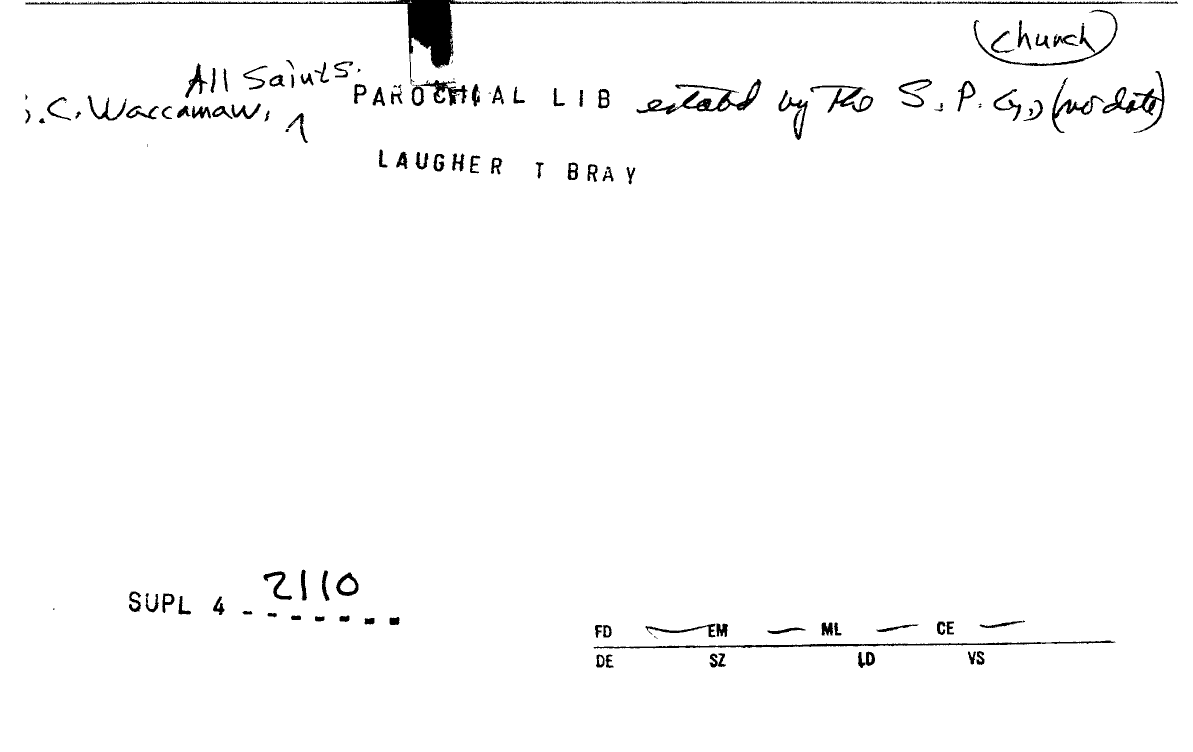 Church
All Saints.
S.C. Waccamaw, ^ PAROCHIAL LIB estabd by The S.P.G., (no date)
LAUGHER T BRAY
SUPL 4 - 2110
FD EM ML CE
DE SZ LD VS